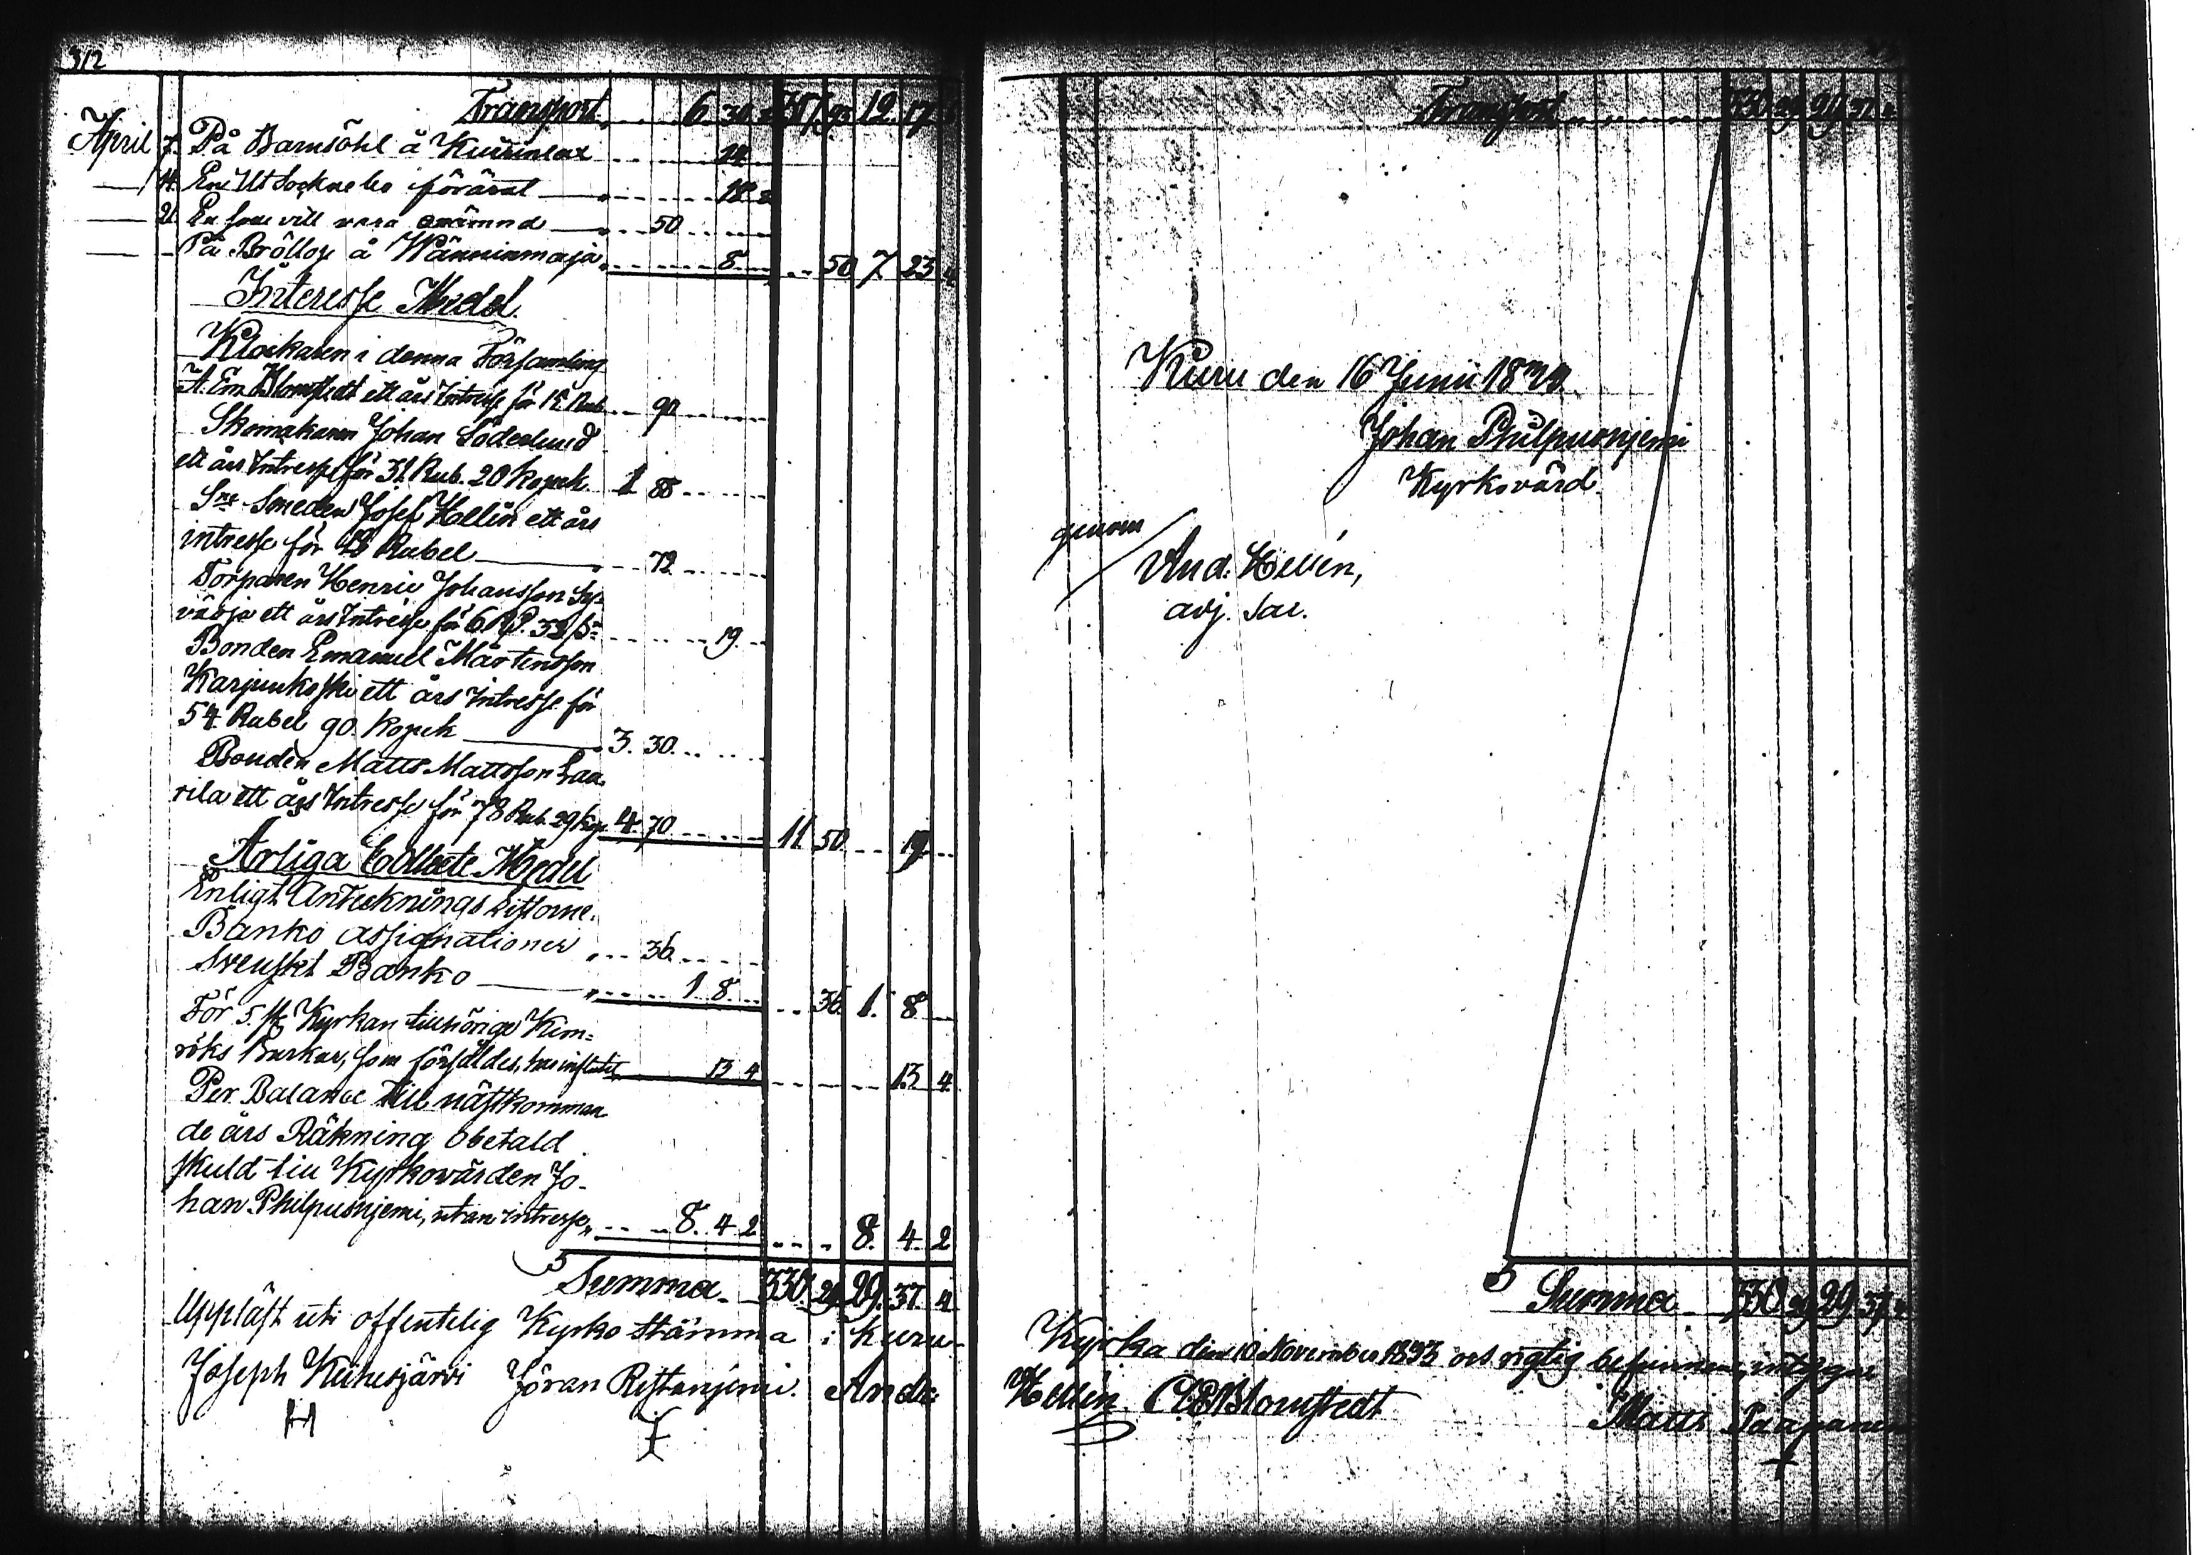 312
Transport 6. 30. 2 317. 93 12. 17
April 7. På Barnsöhl å Kuurulax 14
— 14. En Ut Sockne bo förärat 12 2
— 21. En som vill vara onämnd 50
— På Bröllop å Wänninmaja 8 50 7. 23 4
Interesse Medel.
Klockaren i denna Församling
A. Em. Blomstedt ett års Intresse för 15 Rub. 90
Skomakaren Johan Söderlund
ett års Intresse för 31. Rub. 20 kopek. 1 88
Sne Smeden Josef Hellin ett års
intresse för 12 Rubel 72
Torparen Henric Johansson
ett års Intresse för 6 19.
Bonden Emanuel Mårtensson
Karjunkoski ett års Intresse för
54. Rubel 90. kopek 3. 30.
Bonden Matts Mattsson Laa-
rila ett års Intresse för 78 Rub. 29 kop. 4. 70 11. 50. 19.
Årliga Collecte Medel
Enligt Antecknings Listorne.
Banko assignationer 36.
Svenskt Banko 1 8. 36. 1. 8
För 5. st. Kyrkan tillhörige Kim-
röks Burkar, som försåldes, har influtit 13 4 13 4.
Per Balance till nästkomman
de års Räkning obetald
skuld till Kyrkovärden Jo-
han Philpusnjemi, utan intresse, 8. 4 2 8. 4. 2
Summa. 330. 29 29. 37 4
Uppläst uti offentelig Kyrko stämma i Kuru
Joseph Keihesjärvi Jöran Ristanjemi. And:
H
Transport 330 29 29 37 4
Kuru den 16 Junii 18
Johan Philpusnjemi
Kyrkovärd.
genom
And: Hellén,
adj. Sac.
Summa 330 29 29 37 4
Kyrka den 10 November 1833 och rigtig befunnen, intygar
Hellén C E Blomstedt
Matts Paapanen